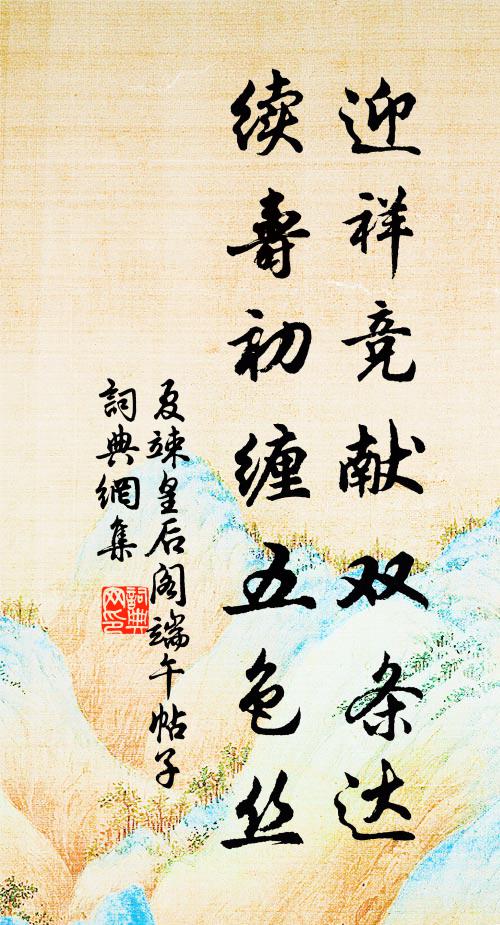 迎祥竞献双条达
续寿初缠五色丝
夏竦皇后阁端午帖子
詞典網集
詞典网印